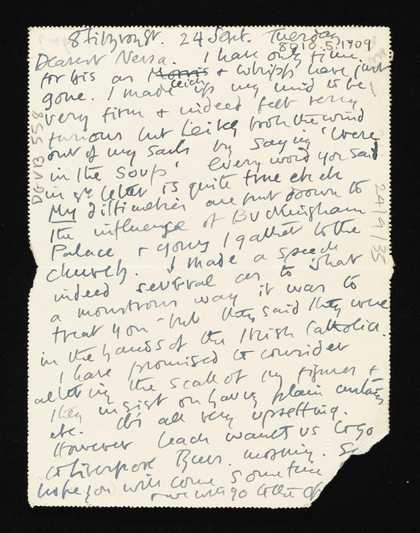 8 Fitzroy St. 24 Sept. Tuesday
8010.5.1709
Dearest Nessa. I have only time
for this as Morris Leich & Whipp have just
gone. I made up my mind to be
very firm & indeed felt very
furious but Leich took the wind
out of my sails by saying 'Were
in the soup'. Every word you said
in yr letter is quite true
My difficulties are put down to
the influence of Buckingham
Palace & yours I gather to the
church. I made a speech
indeed several as to what
a monstrous way it was to
treat you - but they said they were
in the hands of the Irish Catholics.
I have promised to consider
altering the scale of my figures &
they insist on having plain curtains
etc. It's all very upsetting.
However Leach wants us to go
to Liverpool morning. So
hope you will come sometime
& we will go to the
DGVB 558
24/9/35